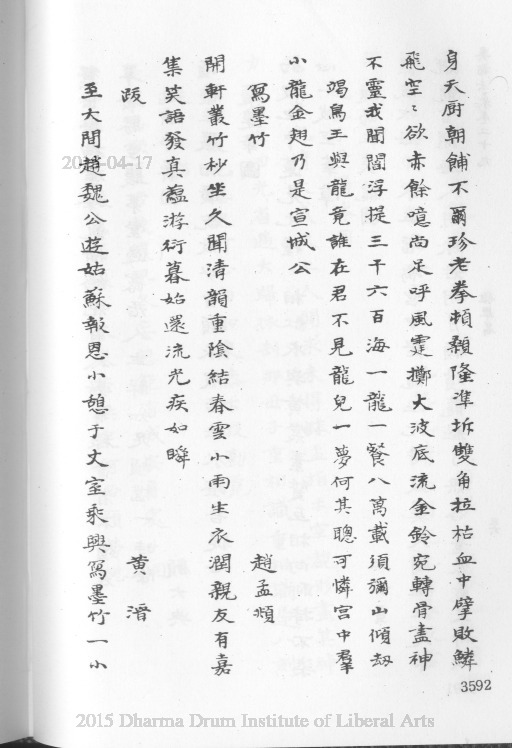 身天厨朝餔不爾珍老拳頓顙隆準拆雙角拉枯血中擘敗鱗
飛空空欲赤餘噫尚足呼風霆擲大波底流金鈴宛轉骨盡神
不靈我聞閻浮提三千六百海一龍一餐八萬載須彌山傾劫
竭鳥王與龍竟誰在君不見龍兒一夢何其聰可憐宮中羣
小龍金翅乃是宣城公
寫墨竹 趙孟頫
開軒叢竹杪坐久聞清韻重陰結春雲小雨生衣潤親友有嘉
集笑語發真蘊游衍暮始還流光疾如瞬
跋 黃溍
至大間趙魏公遊姑蘇報恩小憩于丈室乘興寫墨竹一小
3592
2015-04-17
2015 Dharma Drum Institute of Liberal Arts